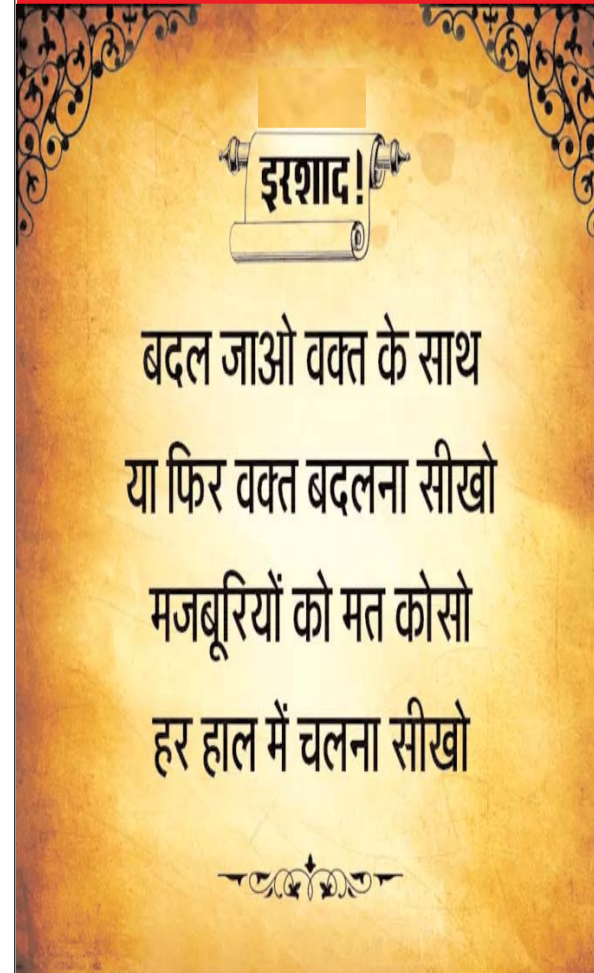 इरशाद!
बदल जाओ वक्त के साथ
या फिर वक्त बदलना सीखो
मजबूरियों को मत कोसो
हर हाल में चलना सीखो